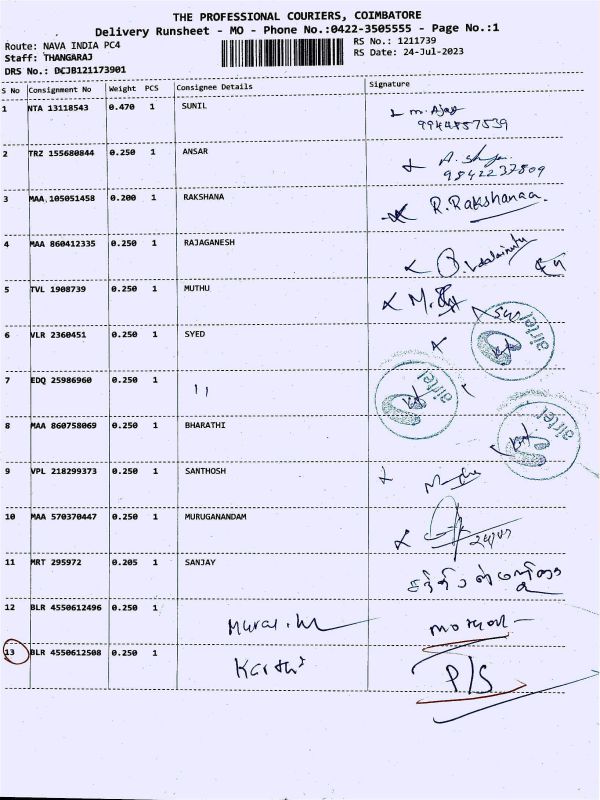 THE PROFESSIONAL COURIERS, COIMBATORE
Delivery Runsheet - MO - Phone No.:0422-3505555 - Page No.:1
Route: NAVA INDIA PC4
RS No.: 1211739
Staff: THANGARAJ
RS Date: 24-Jul-2023
DRS No.: DCJB121173901
S No Consignment No Weight PCS Consignee Details Signature
1 NTA 13118543 0.470 1 SUNIL
2 TRZ 155680844 0.250 1 ANSAR
9842237809
3 MAA 105051458 0.200 1 RAKSHANA R. Rakshanaa.
4 MAA 860412335 0.250 1 RAJAGANESH
5 TVL 1908739 0.250 1 MUTHU
6 VLR 2360451 0.250 1 SYED
airtel
7 EDQ 25986960 0.250 1 11
airtel
airtel
8 MAA 860758069 0.250 1 BHARATHI
9 VPL 218299373 0.250 1 SANTHOSH
10 MAA 570370447 0.250 1 MURUGANANDAM
11 MRT 295972 0.205 1 SANJAY
12 BLR 4550612496 0.250 1
13 BLR 4550612508 0.250 1 P/S